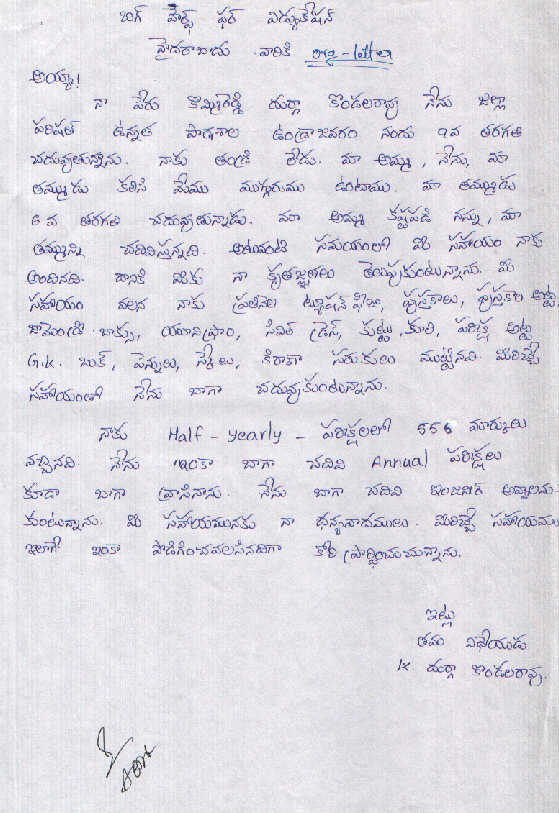 బిగ్ హెల్ప్ ఫర్ ఎడ్యుకేషన్
హైదరాబాదు వారికి
అయ్యా!
నా పేరు కొమ్మిరెడ్డి దుర్గా కొండలరావు నేను జిల్లా
పరిషత్ ఉన్నత పాఠశాల ఉండ్రాజవరం నందు 9వ తరగతి
చదువుతున్నాను. నాకు తండ్రి లేడు. మా అమ్మ, నేను, మా
తమ్ముడు కలిసి మేము ముగ్గురుము ఉంటాము. మా తమ్ముడు
6 వ తరగతి చదువుతున్నాడు. మా అమ్మ కష్టపడి నన్ను, మా
తమ్ముని చదివిస్తున్నది. అటువంటి సమయంలో మీ సహాయం నాకు
అందినది. దానికి మీకు నా కృతజ్ఞతలు తెలుపుకుంటున్నాను. మీ
సహాయం వలన నాకు ప్రతినెల ట్యూషన్ ఫీజు, పుస్తకాలు, పుస్తకాల అట్ట,
జామెంట్రీ బాక్సు, యూనిఫాం, సివిల్ డ్రెస్, కుట్టు కూలి, పరీక్ష అట్ట
G.K. బుక్, పెన్నులు, స్కేలు, కిరాణా సరుకులు ముట్టినవి. మీరిచ్చే
సహాయంతో నేను బాగా చదువుకుంటున్నాను.
నాకు Half - yearly - పరీక్షలలో 556 మార్కులు
వచ్చినవి. నేను ఇంకా బాగా చదివి Annual పరీక్షలు
కూడా బాగా వ్రాసినాను. నేను బాగా చదివి ఇంజనీర్ అవ్వాలను
కుంటున్నాను. మీ సహాయమునకు నా ధన్యవాదములు. మీరిచ్చే సహాయము
ఇలాగే ఇంకా పొడిగించవలసినదిగా కోరి ప్రార్థించుచున్నాను.
ఇట్లు
తమ విధేయుడు
K దుర్గా కొండలరావు.